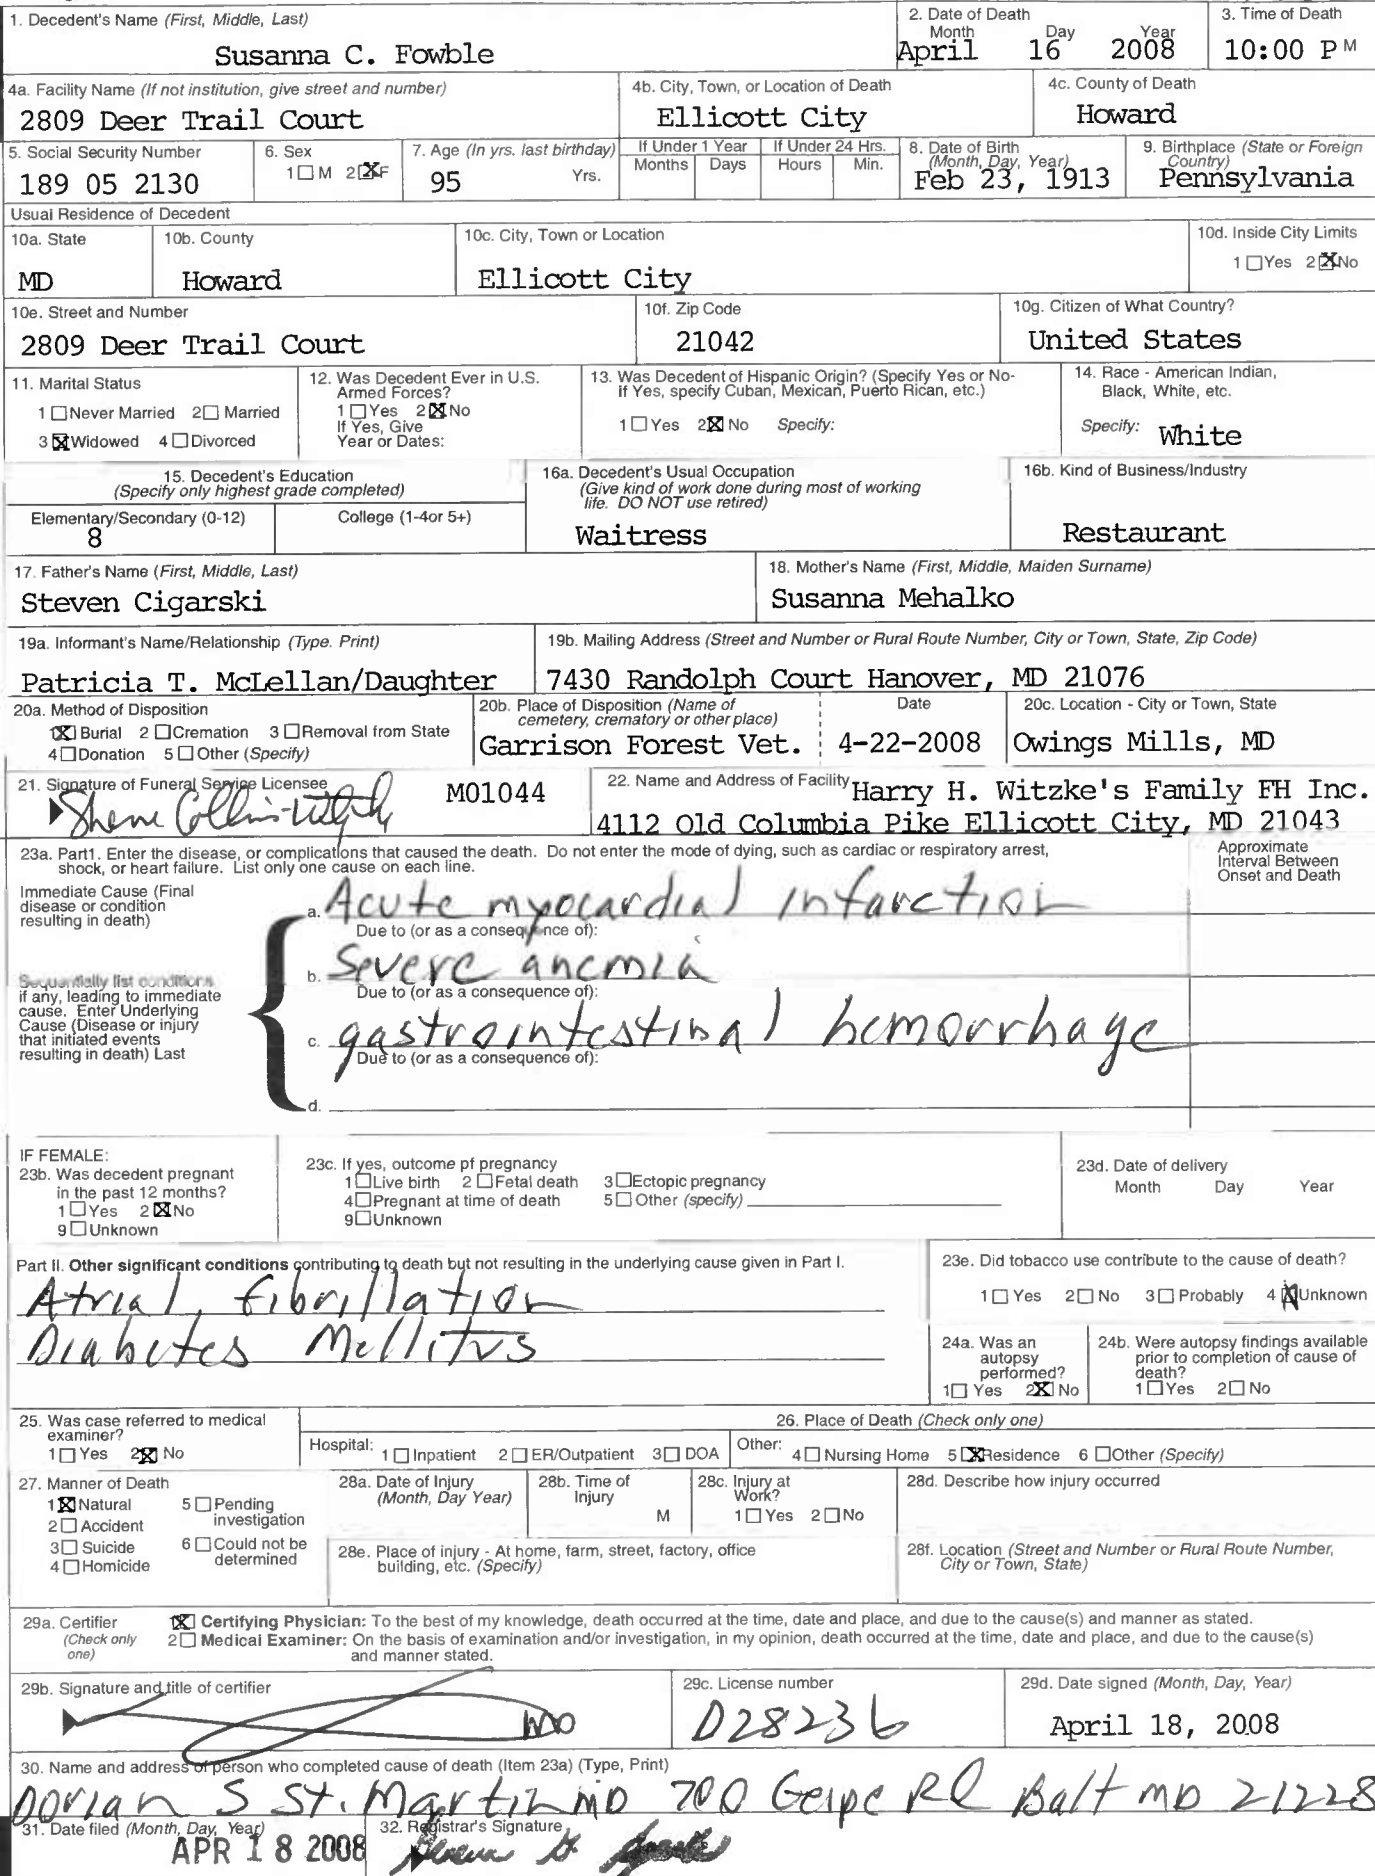 1. Decedent's Name (First, Middle, Last)
Susanna C. Fowble
2. Date of Death
Month Day Year
April 16 2008
3. Time of Death
10:00 P M
4a. Facility Name (If not institution, give street and number)
2809 Deer Trail Court
4b. City, Town, or Location of Death
Ellicott City
4c. County of Death
Howard
5. Social Security Number
189 05 2130
6. Sex
1 ☐ M 2 ☒ F
7. Age (In yrs. last birthday)
95 Yrs.
If Under 1 Year
Months Days
If Under 24 Hrs.
Hours Min.
8. Date of Birth
(Month, Day, Year)
Feb 23, 1913
9. Birthplace (State or Foreign
Country)
Pennsylvania
Usual Residence of Decedent
10a. State
MD
10b. County
Howard
10c. City, Town or Location
Ellicott City
10d. Inside City Limits
1 ☐ Yes 2 ☒ No
10e. Street and Number
2809 Deer Trail Court
10f. Zip Code
21042
10g. Citizen of What Country?
United States
11. Marital Status
1 ☐ Never Married 2 ☐ Married
3 ☒ Widowed 4 ☐ Divorced
12. Was Decedent Ever in U.S.
Armed Forces?
1 ☐ Yes 2 ☒ No
If Yes, Give
Year or Dates:
13. Was Decedent of Hispanic Origin? (Specify Yes or No-
If Yes, specify Cuban, Mexican, Puerto Rican, etc.)
1 ☐ Yes 2 ☒ No Specify:
14. Race - American Indian,
Black, White, etc.
Specify: White
15. Decedent's Education
(Specify only highest grade completed)
Elementary/Secondary (0-12)
8
College (1-4or 5+)
16a. Decedent's Usual Occupation
(Give kind of work done during most of working
life. DO NOT use retired)
Waitress
16b. Kind of Business/Industry
Restaurant
17. Father's Name (First, Middle, Last)
Steven Cigarski
18. Mother's Name (First, Middle, Maiden Surname)
Susanna Mehalko
19a. Informant's Name/Relationship (Type. Print)
Patricia T. McLellan/Daughter
19b. Mailing Address (Street and Number or Rural Route Number, City or Town, State, Zip Code)
7430 Randolph Court Hanover, MD 21076
20a. Method of Disposition
1 ☒ Burial 2 ☐ Cremation 3 ☐ Removal from State
4 ☐ Donation 5 ☐ Other (Specify)
20b. Place of Disposition (Name of
cemetery, crematory or other place)
Garrison Forest Vet.
Date
4-22-2008
20c. Location - City or Town, State
Owings Mills, MD
21. Signature of Funeral Service Licensee
M01044
22. Name and Address of Facility Harry H. Witzke's Family FH Inc.
4112 Old Columbia Pike Ellicott City, MD 21043
23a. Part1. Enter the disease, or complications that caused the death. Do not enter the mode of dying, such as cardiac or respiratory arrest,
shock, or heart failure. List only one cause on each line.
Approximate
Interval Between
Onset and Death
Immediate Cause (Final
disease or condition
resulting in death)
a. Acute myocardial infarction
Due to (or as a consequence of):
b. Severe anemia
Due to (or as a consequence of):
Sequentially list conditions
if any, leading to immediate
cause. Enter Underlying
Cause (Disease or injury
that initiated events
resulting in death) Last
c. gastrointestinal hemorrhage
Due to (or as a consequence of):
d.
IF FEMALE:
23b. Was decedent pregnant
in the past 12 months?
1 ☐ Yes 2 ☒ No
9 ☐ Unknown
23c. If yes, outcome pf pregnancy
1 ☐ Live birth 2 ☐ Fetal death 3 ☐ Ectopic pregnancy
4 ☐ Pregnant at time of death 5 ☐ Other (specify)
9 ☐ Unknown
23d. Date of delivery
Month Day Year
Part II. Other significant conditions contributing to death but not resulting in the underlying cause given in Part I.
Atrial fibrillation
Diabetes Mellitus
23e. Did tobacco use contribute to the cause of death?
1 ☐ Yes 2 ☐ No 3 ☐ Probably 4 ☒ Unknown
24a. Was an
autopsy
performed?
1 ☐ Yes 2 ☒ No
24b. Were autopsy findings available
prior to completion of cause of
death?
1 ☐ Yes 2 ☐ No
25. Was case referred to medical
examiner?
1 ☐ Yes 2 ☒ No
26. Place of Death (Check only one)
Hospital: 1 ☐ Inpatient 2 ☐ ER/Outpatient 3 ☐ DOA
Other: 4 ☐ Nursing Home 5 ☒ Residence 6 ☐ Other (Specify)
27. Manner of Death
1 ☒ Natural 5 ☐ Pending
investigation
2 ☐ Accident
3 ☐ Suicide 6 ☐ Could not be
determined
4 ☐ Homicide
28a. Date of Injury
(Month, Day Year)
28b. Time of
Injury
M
28c. Injury at
Work?
1 ☐ Yes 2 ☐ No
28d. Describe how injury occurred
28e. Place of injury - At home, farm, street, factory, office
building, etc. (Specify)
28f. Location (Street and Number or Rural Route Number,
City or Town, State)
29a. Certifier
(Check only
one)
1 ☒ Certifying Physician: To the best of my knowledge, death occurred at the time, date and place, and due to the cause(s) and manner as stated.
2 ☐ Medical Examiner: On the basis of examination and/or investigation, in my opinion, death occurred at the time, date and place, and due to the cause(s)
and manner stated.
29b. Signature and title of certifier
MD
29c. License number
D28236
29d. Date signed (Month, Day, Year)
April 18, 2008
30. Name and address of person who completed cause of death (Item 23a) (Type, Print)
Dorian S St. Martin MD 700 Geipe Rd Balt MD 21228
31. Date filed (Month, Day, Year)
APR 18 2008
32. Registrar's Signature